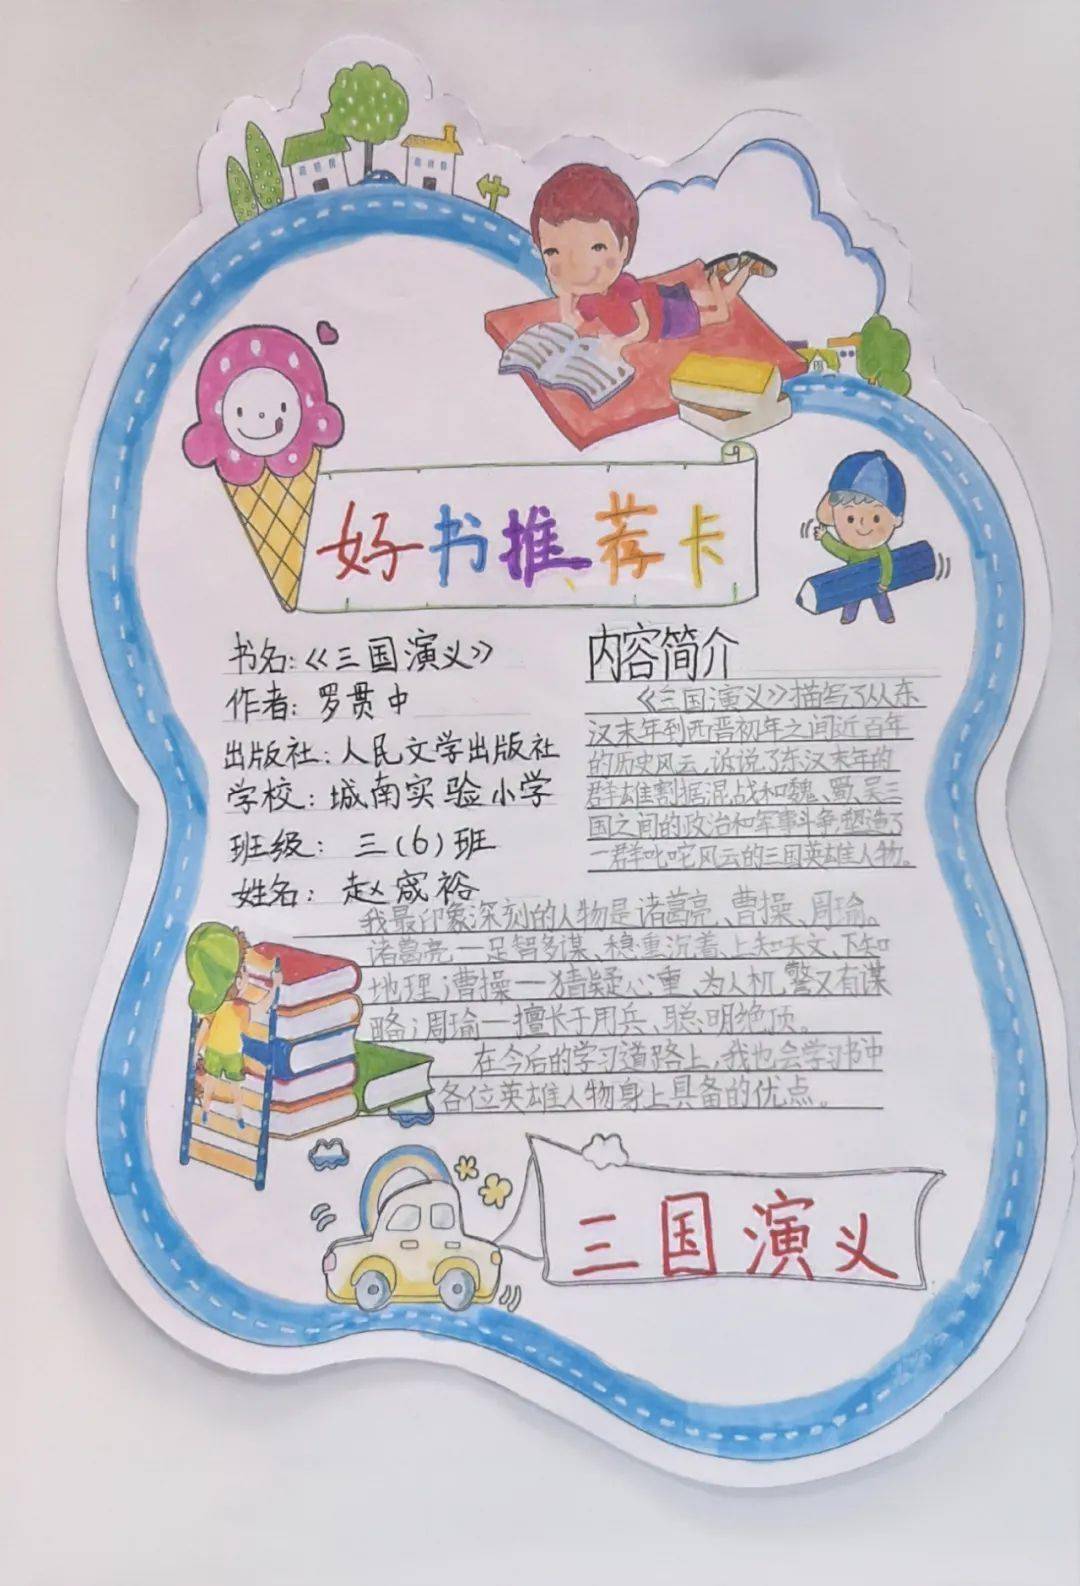 好书推荐卡
书名:《三国演义》
作者:罗贯中
出版社:人民文学出版社
学校:城南实验小学
班级:三(6)班
姓名:赵宬裕
内容简介
《三国演义》描写了从东
汉末年到西晋初年之间近百年
的历史风云,诉说了东汉末年的
群雄割据混战和魏、蜀、吴三
国之间的政治和军事斗争,塑造了
一群叱咤风云的三国英雄人物。
我最印象深刻的人物是诸葛亮、曹操、周瑜。
诸葛亮—足智多谋、稳重沉着、上知天文、下知
地理;曹操—猜疑心重、为人机警又有谋
略;周瑜—擅长于用兵、聪明绝顶。
在今后的学习道路上,我也会学习书中
各位英雄人物身上具备的优点。
三国演义